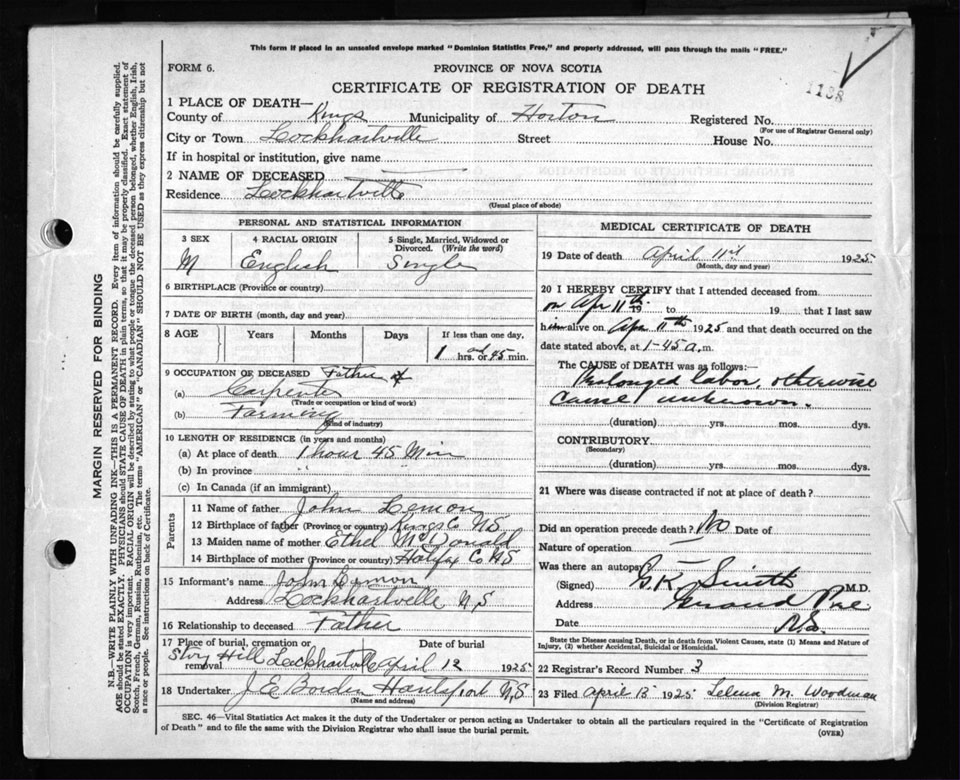 This form if placed in an unsealed envelope marked "Dominion Statistics Free," and properly addressed, will pass through the mails "FREE."
FORM 6.
PROVINCE OF NOVA SCOTIA
CERTIFICATE OF REGISTRATION OF DEATH
1138
1 PLACE OF DEATH—
County of Kings Municipality of Horton Registered No.
(For use of Registrar General only)
City or Town Lockhartville Street House No.
If in hospital or institution, give name
2 NAME OF DECEASED
Residence Lockhartville
(Usual place of abode)
PERSONAL AND STATISTICAL INFORMATION
3 SEX 4 RACIAL ORIGIN 5 Single, Married, Widowed or Divorced. (Write the word)
M English Single
6 BIRTHPLACE (Province or country)
7 DATE OF BIRTH (month, day and year)
8 AGE Years Months Days If less than one day,
1 hrs. or 45 min.
9 OCCUPATION OF DECEASED Father of
(a) Carpenter
(Trade or occupation or kind of work)
(b) Farming
(Kind of industry)
10 LENGTH OF RESIDENCE (in years and months)
(a) At place of death 1 hour 45 Min
(b) In province " " "
(c) In Canada (if an immigrant)
Parents
11 Name of father John Lemon
12 Birthplace of father (Province or country) Kings Co NS
13 Maiden name of mother Ethel McDonald
14 Birthplace of mother (Province or country) Halifax Co NS
15 Informant's name John Lemon
Address Lockhartville N,S
16 Relationship to deceased Father
17 Place of burial, cremation or removal Date of burial
Hill Lockhartville April 12 1925
18 Undertaker J E Borden Hantsport N,S
(Name and address)
MEDICAL CERTIFICATE OF DEATH
19 Date of death April 11th 1925
(Month, day and year)
20 I HEREBY CERTIFY that I attended deceased from
on Apr 11th 19 to 19 that I last saw
him alive on Apr 11th 1925 and that death occurred on
date stated above, at 1-45 a.m.
The CAUSE of DEATH was as follows:—
Prolonged labor, otherwise
cause unknown.
(duration) yrs. mos. dys.
CONTRIBUTORY
(Secondary)
(duration) yrs. mos. dys.
21 Where was disease contracted if not at place of death?
Did an operation precede death? No Date of
Nature of operation
Was there an autopsy
(Signed) G.K. Smith M.D.
Address Grand Pre
Date N.S.
State the Disease causing Death, or in death from Violent Causes, state (1) Means and Nature of Injury, (2) whether Accidental, Suicidal or Homicidal.
22 Registrar's Record Number 3
23 Filed April 13 1925 Lelena M. Woodman
(Division Registrar)
SEC. 46—Vital Statistics Act makes it the duty of the Undertaker or person acting as Undertaker to obtain all the particulars required in the "Certificate of Registration
of Death" and to file the same with the Division Registrar who shall issue the burial permit.
(OVER)
MARGIN RESERVED FOR BINDING
N.B.—WRITE PLAINLY WITH UNFADING INK—THIS IS A PERMANENT RECORD. Every item of information should be carefully supplied.
AGE should be stated EXACTLY. PHYSICIANS should STATE CAUSE OF DEATH in plain terms, so that it may be properly classified. Exact statement of
OCCUPATION is very important. RACIAL ORIGIN will be described by stating to what people or tongue the deceased person belonged, whether English, Irish,
Scotch, French, German, Russian, Ruthenian, etc. The terms "AMERICAN" or "CANADIAN" SHOULD NOT BE USED as they express citizenship but not
a race or people. See instructions on back of Certificate.